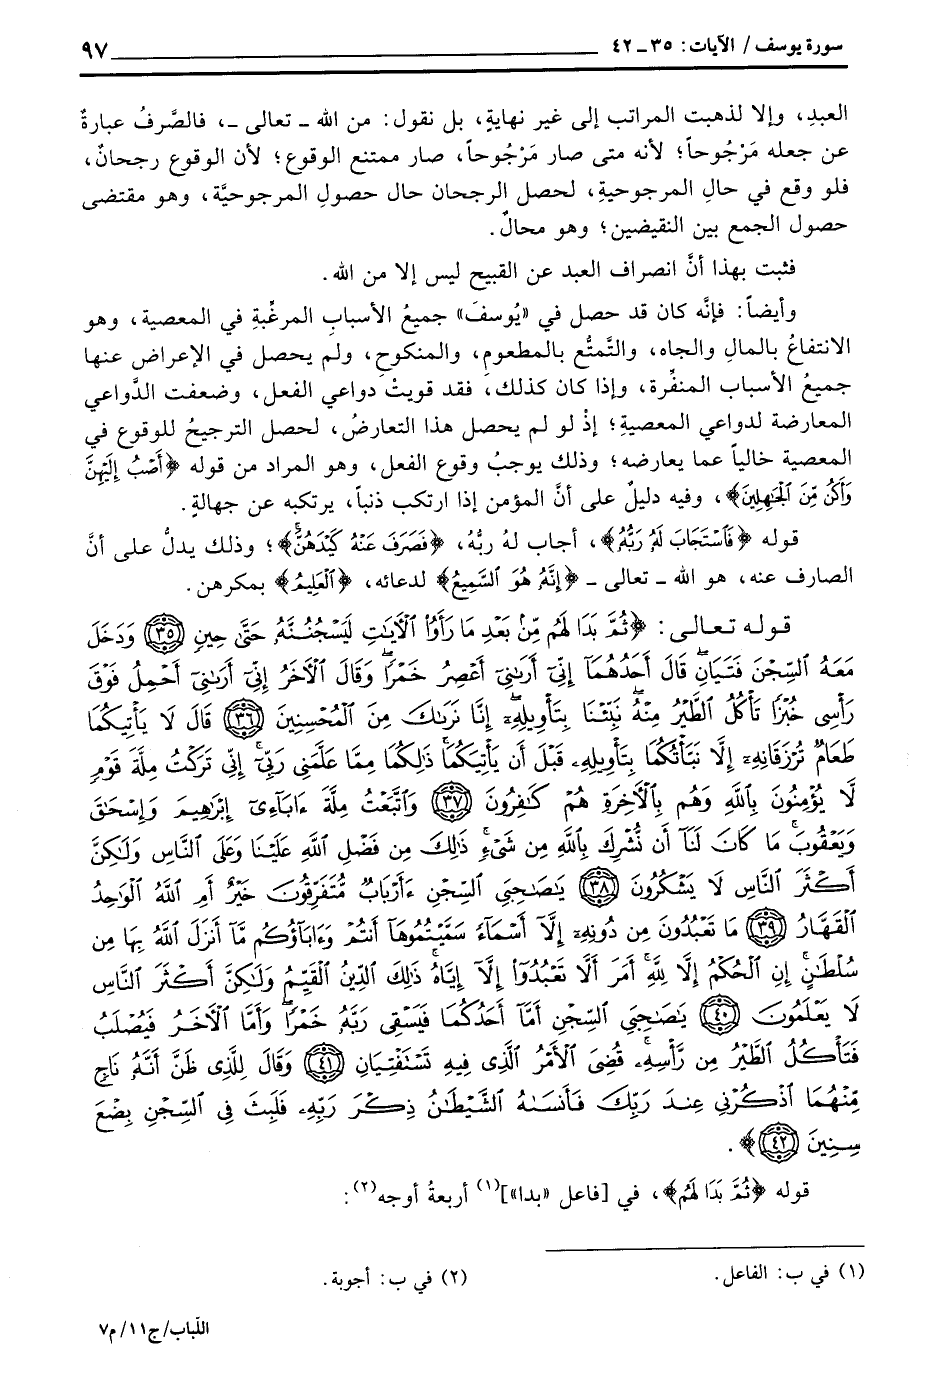 سورة يوسف / الآيات: ٣٥ ـ ٤٢ ٩٧
العبدِ، وإلا لذهبت المراتب إلى غير نهايةٍ، بل نقول: من الله ـ تعالى ـ، فالصَّرفُ عبارةٌ
عن جعله مَرْجُوحاً؛ لأنه متى صار مَرْجُوحاً، صار ممتنع الوقوع؛ لأن الوقوع رجحانٌ،
فلو وقع في حالِ المرجوحيةِ، لحصل الرجحان حال حصولِ المرجوحيَّة، وهو مقتضى
حصول الجمع بين النقيضين؛ وهو محالٌ.
فثبت بهذا أنَّ انصراف العبد عن القبيح ليس إلا من الله.
وأيضاً: فإنَّه كان قد حصل في «يُوسفَ» جميعُ الأسبابِ المرغِّبةِ في المعصية، وهو
الانتفاعُ بالمالِ والجاه، والتَّمتُّع بالمطعومِ، والمنكوحِ، ولم يحصل في الإعراض عنها
جميعُ الأسباب المنفِّرة، وإذا كان كذلك، فقد قويتْ دواعي الفعل، وضعفت الدَّواعي
المعارضة لدواعي المعصيةِ؛ إذْ لو لم يحصل هذا التعارضُ، لحصل الترجيحُ للوقوع في
المعصية خالياً عما يعارضه؛ وذلك يوجبُ وقوع الفعل، وهو المراد من قوله ﴿أَصْبُ إِلَيْهِنَّ
وَأَكُن مِّنَ الْجَاهِلِينَ﴾، وفيه دليلٌ على أنَّ المؤمن إذا ارتكب ذنباً، يرتكبه عن جهالةٍ.
قوله ﴿فَاسْتَجَابَ لَهُ رَبُّهُ﴾، أجاب لهُ ربُّه، ﴿فَصَرَفَ عَنْهُ كَيْدَهُنَّ﴾؛ وذلك يدلُّ على أنَّ
الصارف عنه، هو الله ـ تعالى ـ ﴿إِنَّهُ هُوَ السَّمِيعُ﴾ لدعائه، ﴿الْعَلِيمُ﴾ بمكرهن.
قوله تعالى: ﴿ثُمَّ بَدَا لَهُم مِّنْ بَعْدِ مَا رَأَوُا الْآيَاتِ لَيَسْجُنُنَّهُ حَتَّى حِينٍ ٣٥ وَدَخَلَ
مَعَهُ السِّجْنَ فَتَيَانِ قَالَ أَحَدُهُمَا إِنِّي أَرَانِي أَعْصِرُ خَمْرًا وَقَالَ الْآخَرُ إِنِّي أَرَانِي أَحْمِلُ فَوْقَ
رَأْسِي خُبْزًا تَأْكُلُ الطَّيْرُ مِنْهُ نَبِّئْنَا بِتَأْوِيلِهِ إِنَّا نَرَاكَ مِنَ الْمُحْسِنِينَ ٣٦ قَالَ لَا يَأْتِيكُمَا
طَعَامٌ تُرْزَقَانِهِ إِلَّا نَبَّأْتُكُمَا بِتَأْوِيلِهِ قَبْلَ أَن يَأْتِيَكُمَا ذَلِكُمَا مِمَّا عَلَّمَنِي رَبِّي إِنِّي تَرَكْتُ مِلَّةَ قَوْمٍ
لَّا يُؤْمِنُونَ بِاللَّهِ وَهُم بِالْآخِرَةِ هُمْ كَافِرُونَ ٣٧ وَاتَّبَعْتُ مِلَّةَ ءَابَاءِي إِبْرَاهِيمَ وَإِسْحَاقَ
وَيَعْقُوبَ مَا كَانَ لَنَا أَن نُّشْرِكَ بِاللَّهِ مِن شَيْءٍ ذَلِكَ مِن فَضْلِ اللَّهِ عَلَيْنَا وَعَلَى النَّاسِ وَلَكِنَّ
أَكْثَرَ النَّاسِ لَا يَشْكُرُونَ ٣٨ يَا صَاحِبَيِ السِّجْنِ ءَأَرْبَابٌ مُّتَفَرِّقُونَ خَيْرٌ أَمِ اللَّهُ الْوَاحِدُ
الْقَهَّارُ ٣٩ مَا تَعْبُدُونَ مِن دُونِهِ إِلَّا أَسْمَاءً سَمَّيْتُمُوهَا أَنتُمْ وَءَابَاؤُكُم مَّا أَنزَلَ اللَّهُ بِهَا مِن
سُلْطَانٍ إِنِ الْحُكْمُ إِلَّا لِلَّهِ أَمَرَ أَلَّا تَعْبُدُوا إِلَّا إِيَّاهُ ذَلِكَ الدِّينُ الْقَيِّمُ وَلَكِنَّ أَكْثَرَ النَّاسِ
لَا يَعْلَمُونَ ٤٠ يَا صَاحِبَيِ السِّجْنِ أَمَّا أَحَدُكُمَا فَيَسْقِي رَبَّهُ خَمْرًا وَأَمَّا الْآخَرُ فَيُصْلَبُ
فَتَأْكُلُ الطَّيْرُ مِن رَّأْسِهِ قُضِيَ الْأَمْرُ الَّذِي فِيهِ تَسْتَفْتِيَانِ ٤١ وَقَالَ لِلَّذِي ظَنَّ أَنَّهُ نَاجٍ
مِّنْهُمَا اذْكُرْنِي عِندَ رَبِّكَ فَأَنسَاهُ الشَّيْطَانُ ذِكْرَ رَبِّهِ فَلَبِثَ فِي السِّجْنِ بِضْعَ
سِنِينَ ٤٢﴾.
قوله ﴿ثُمَّ بَدَا لَهُم﴾، في [فاعل «بدا»](١) أربعةُ أوجه(٢):
(١) في ب: الفاعل. (٢) في ب: أجوبة.
اللباب/ج١١/م٧